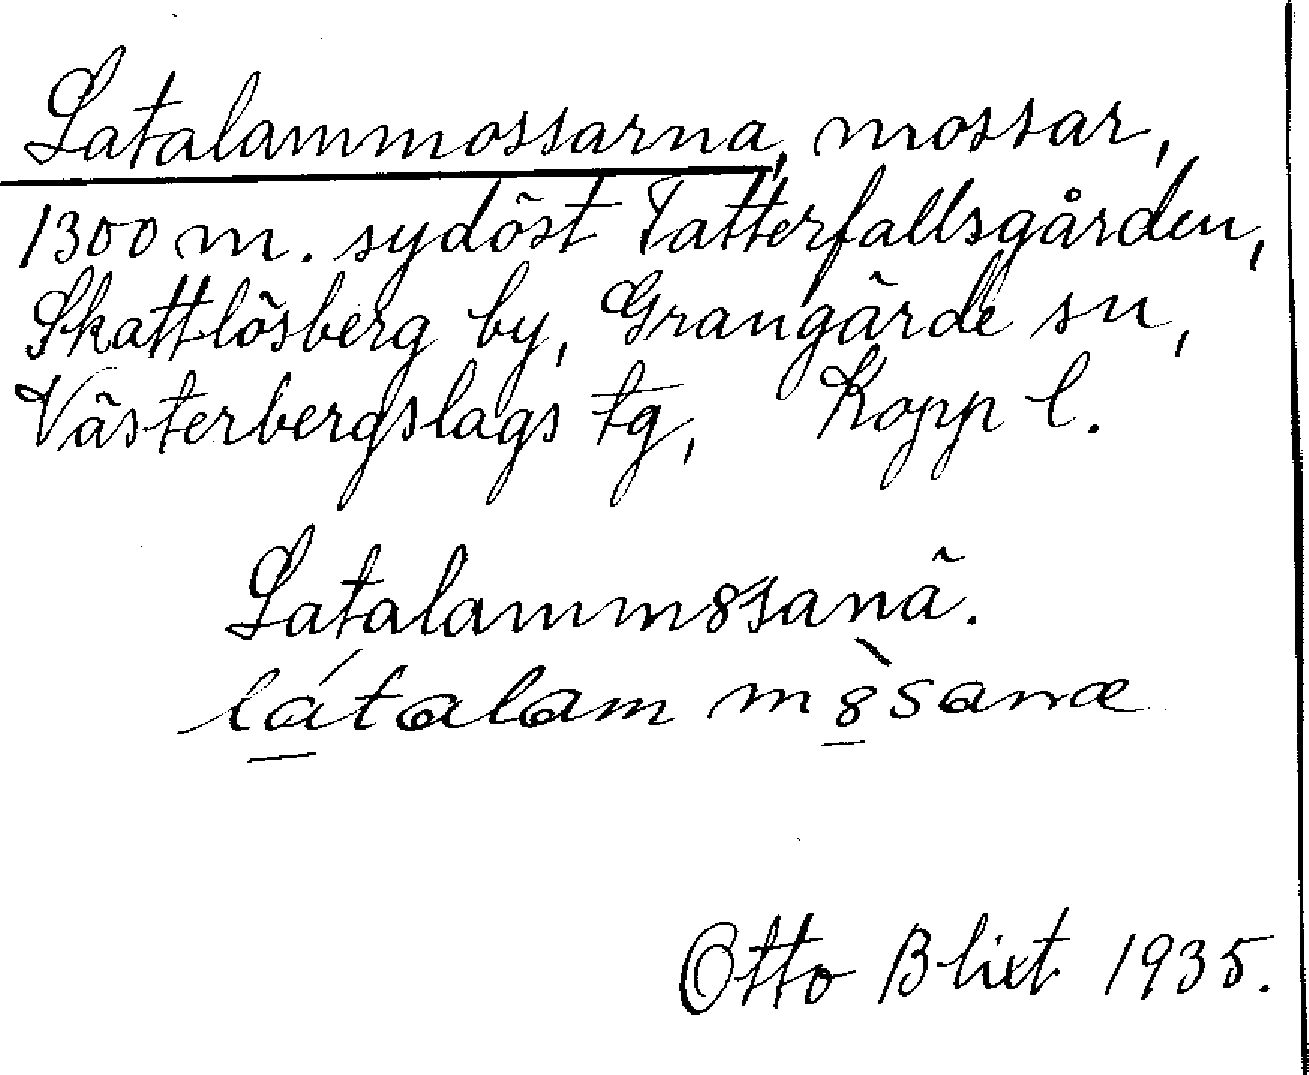 Latalammossarna, mossar,
1300 m. sydöst Tatterfallsgården,
Skattlösberg by, Grangärde sn,
Västerbergslags tg, Kopp l.
Latalamm8sanä.
látalam m8̀sanæ
Otto Blixt 1935.